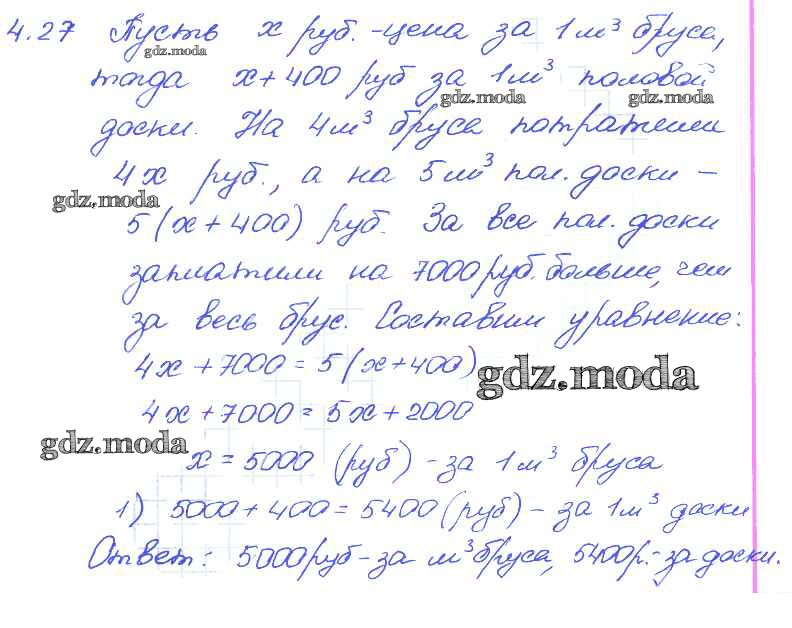 4.27 Пусть x руб. - цена за 1 м³ бруса,
gdz.moda
тогда x + 400 руб за 1 м³ половой
gdz.moda gdz.moda
доски. На 4 м³ бруса потратили
4x руб., а на 5 м³ пол. доски -
gdz.moda
5(x + 400) руб. За все пол. доски
заплатили на 7000 руб. больше, чем
за весь брус. Составим уравнение:
4x + 7000 = 5(x + 400)
gdz.moda
4x + 7000 = 5x + 2000
gdz.moda
x = 5000 (руб) - за 1 м³ бруса
1) 5000 + 400 = 5400 (руб) - за 1 м³ доски
Ответ: 5000 руб - за м³ бруса, 5400 р. - за доски.